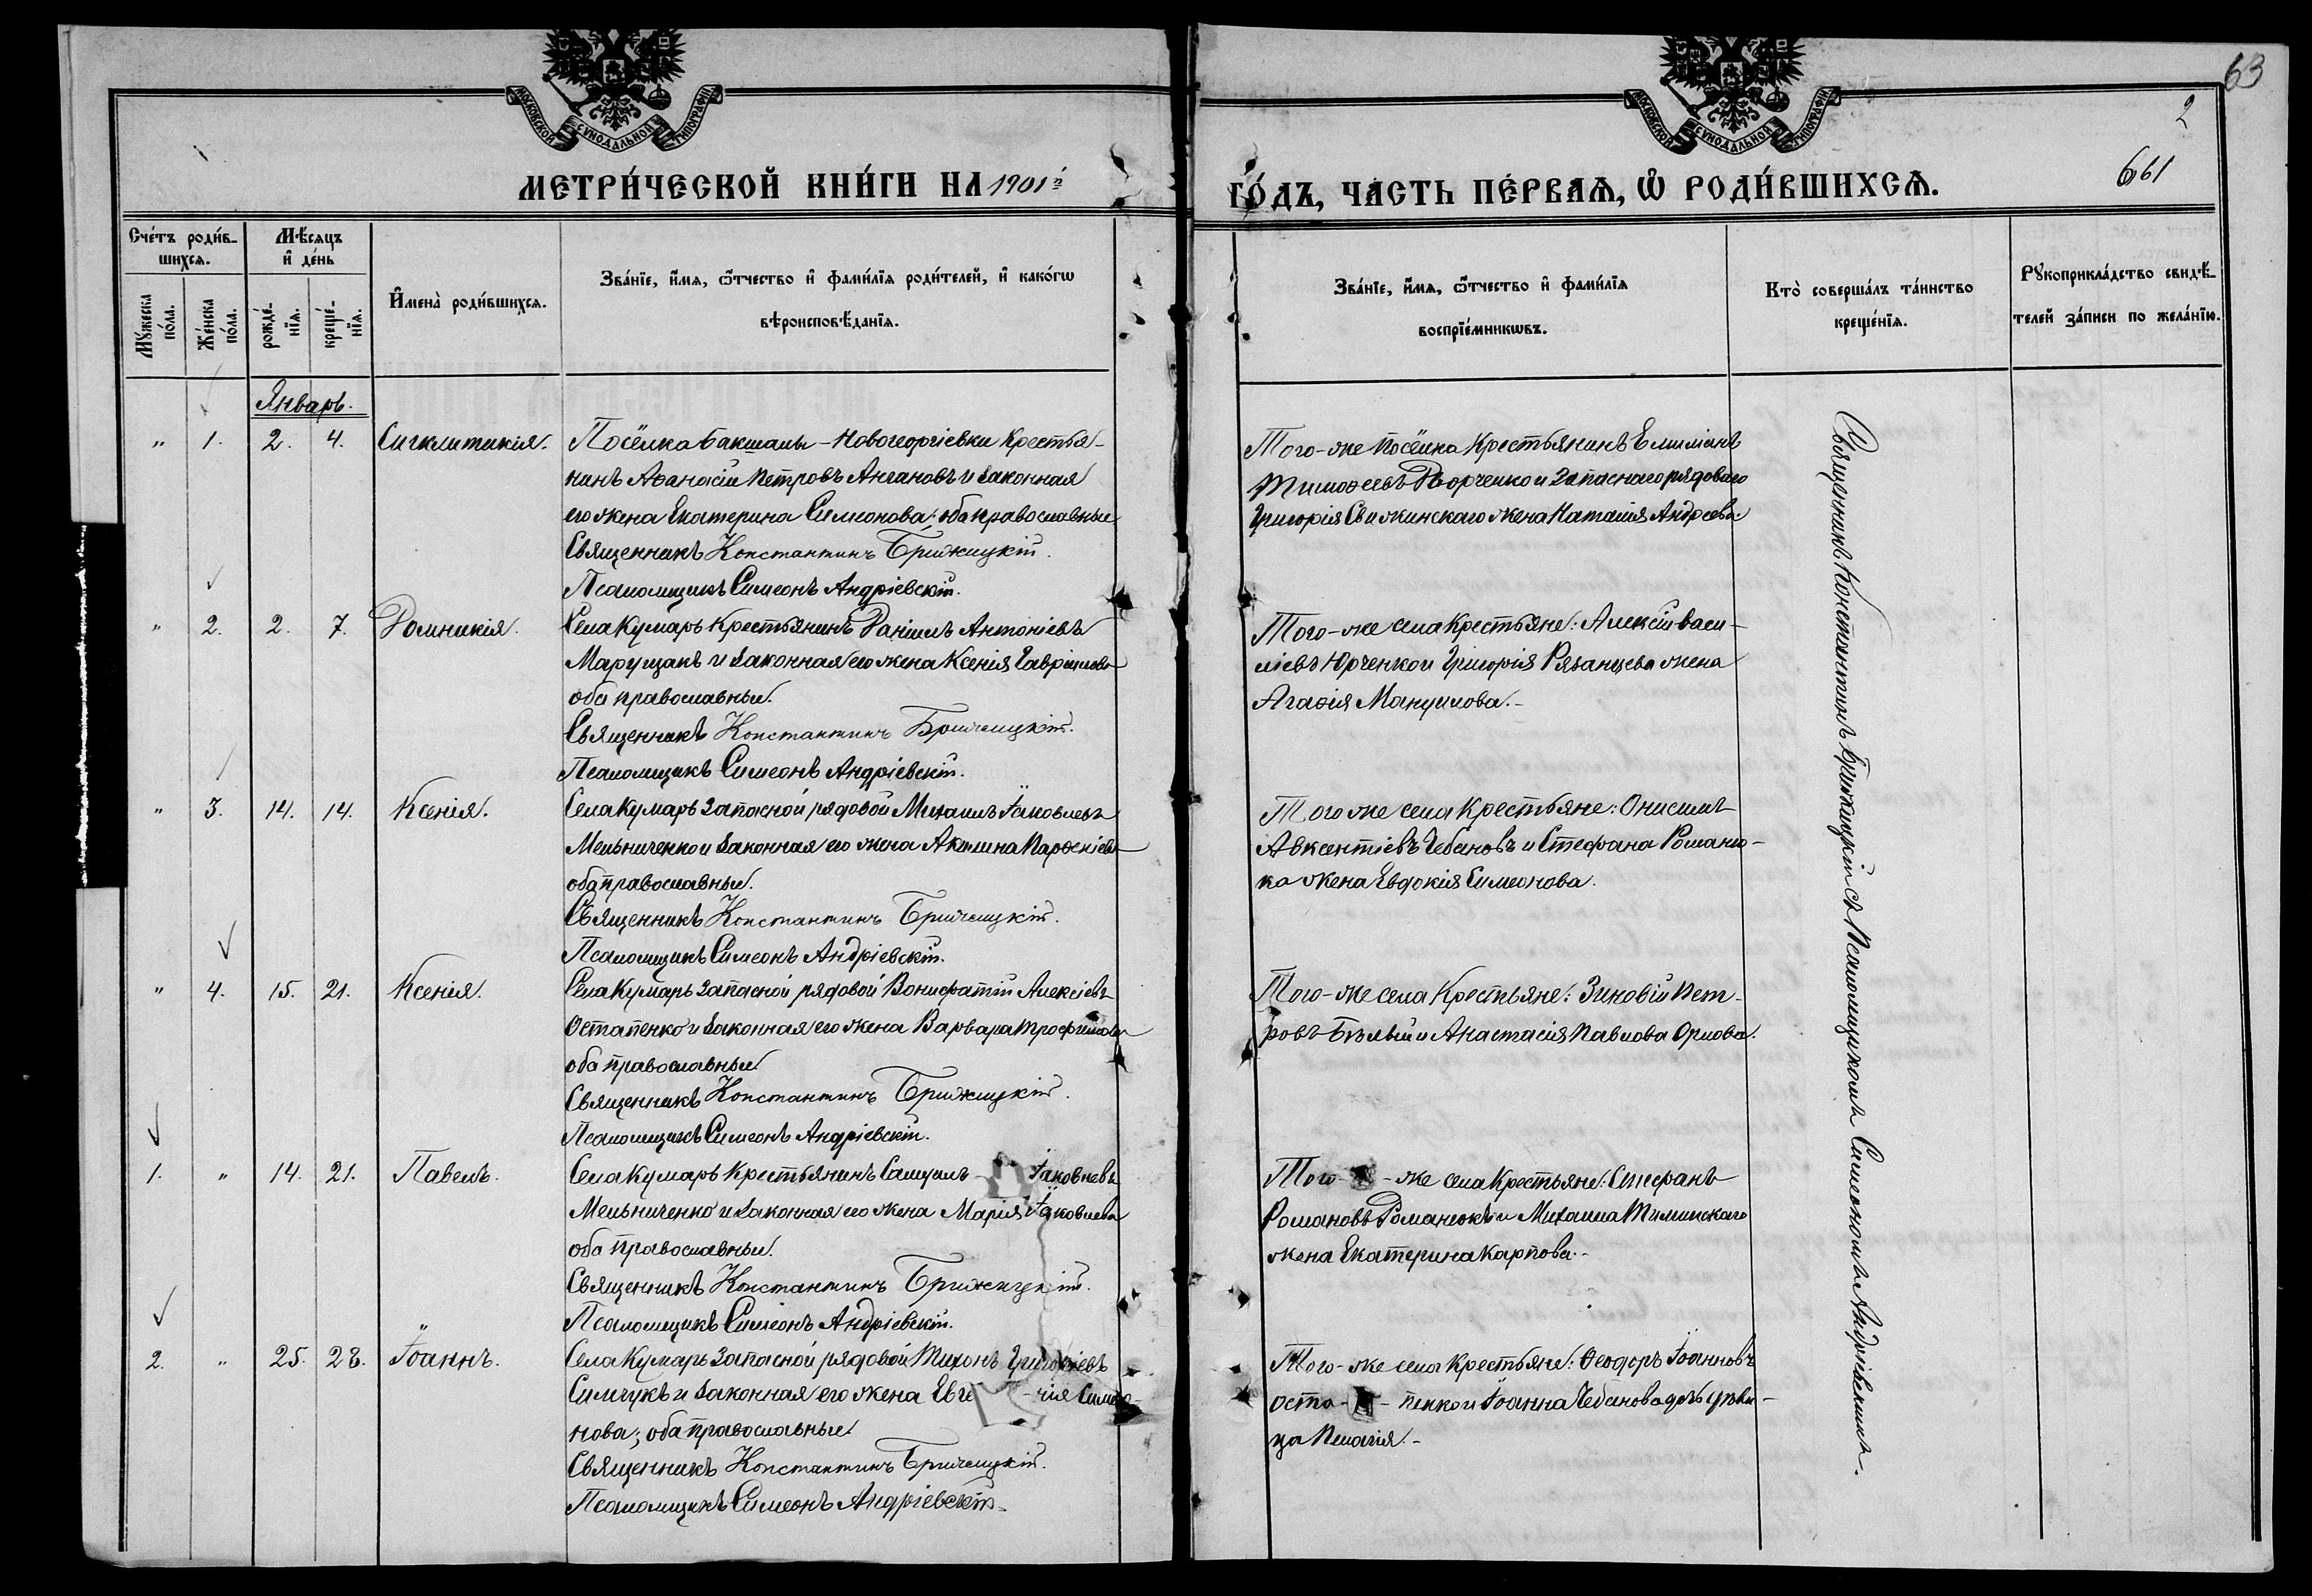 63
2
661
МОСКОВСКОЙ СѴНОДАЛЬНОЙ ТИПОГРАФІИ
МОСКОВСКОЙ СѴНОДАЛЬНОЙ ТИПОГРАФІИ
МЕТРИ́ЧЕСКОЙ КНИ́ГИ НА 1901й ГО́ДЪ, ЧА́СТЬ ПЕ́РВАѦ, Ѽ РОДИ́ВШИХСѦ.
Сче́тъ роди́в-
шихсѧ.
Мѣ́сѧцъ
и҆ де́нь
Мꙋ́жеска
по́ла.
Же́нска
по́ла.
рожде́-
нїѧ.
креще́-
нїѧ.
И҆мена̀ роди́вшихсѧ.
Зва́нїе, и҆́мѧ, ѻ҆́тчество и҆ фами́лїѧ роди́телей, и҆ како́гѡ
вѣроисповѣ́данїѧ.
Зва́нїе, и҆́мѧ, ѻ҆́тчество и҆ фами́лїѧ
воспрїе́мникѡвъ.
Кто̀ соверша́лъ та́инство
креще́нїѧ.
Рꙋкоприкла́дство свидѣ́-
телей за́писи по жела́нїю.
Январь.
" 1. 2. 4. Сигклитикія. Посёлка Бакшалы-Новогеоргіевки крестья-
нинъ Аѳанасій Петровъ Ангановъ и законная
его жена Екатерина Симеонова; оба православные
Священникъ Константинъ Брижицкій.
Псаломщикъ Симеонъ Андріевскій.
Того-же посёлка крестьянинъ Емиліанъ
Тимоѳеевъ Дворченко и запаснаго рядоваго
Григорія Свижинскаго жена Наталія Андреева.
" 2. 2. 7. Домникія. Села Кумарь крестьянинъ Даніилъ Антоніевъ
Марущакъ и законная его жена Ксенія Гавріилова
оба православные.
Священникъ Константинъ Брижицкій.
Псаломщикъ Симеонъ Андріевскій.
Того-же села крестьяне: Алексій Васи-
ліевъ Юрченко и Григорія Рязанцева жена
Агаѳія Мануилова.-
" 3. 14. 14. Ксенія. Села Кумарь запасной рядовой Михаилъ Іаковлевъ
Мельниченко и законная его жена Акилина Парѳеніева
оба православные.
Священникъ Константинъ Брижицкій.
Псаломщикъ Симеонъ Андріевскій.
Того же села крестьяне: Онисимъ
Авксентіевъ Чебановъ и Стефана Романю-
ка жена Евдокія Симеонова.
" 4. 15. 21. Ксенія. Села Кумарь запасной рядовой Вонифатій Алексіевъ
Остапенко и законная его жена Варвара Трофимова
оба православные.
Священникъ Константинъ Брижицкій.
Псаломщикъ Симеонъ Андріевскій.
Того-же села крестьяне: Зиновій Пет-
ровъ Бѣлый и Анастасія Павлова Орлова.
1. " 14. 21. Павелъ. Села Кумарь крестьянинъ Самуилъ - Іаковлевъ
Мельниченко и законная его жена Марія Іаковлева
оба православные.
Священникъ Константинъ Брижицкій.
Псаломщикъ Симеонъ Андріевскій.
Того- -же села крестьяне: Стефанъ
Романовъ Романюкъ и Михаила Тиминскаго
жена Екатерина Карпова.-
2. " 25. 28. Іоаннъ. Села Кумарь запасной рядовой Тихонъ Григоріевъ
Симчукъ и законная его жена Евге -нія Симео-
нова; оба православные.
Священникъ Константинъ Брижицкій.
Псаломщикъ Симеонъ Андріевскій.
Того-же села крестьяне: Ѳеодоръ Іоанновъ
Оста- -пенко и Іоанна Чебанова дочь дѣви-
ца Пелагія.-
Священникъ Константинъ Брижицкій съ Псаломщикомъ Симеономъ Андріевскимъ.